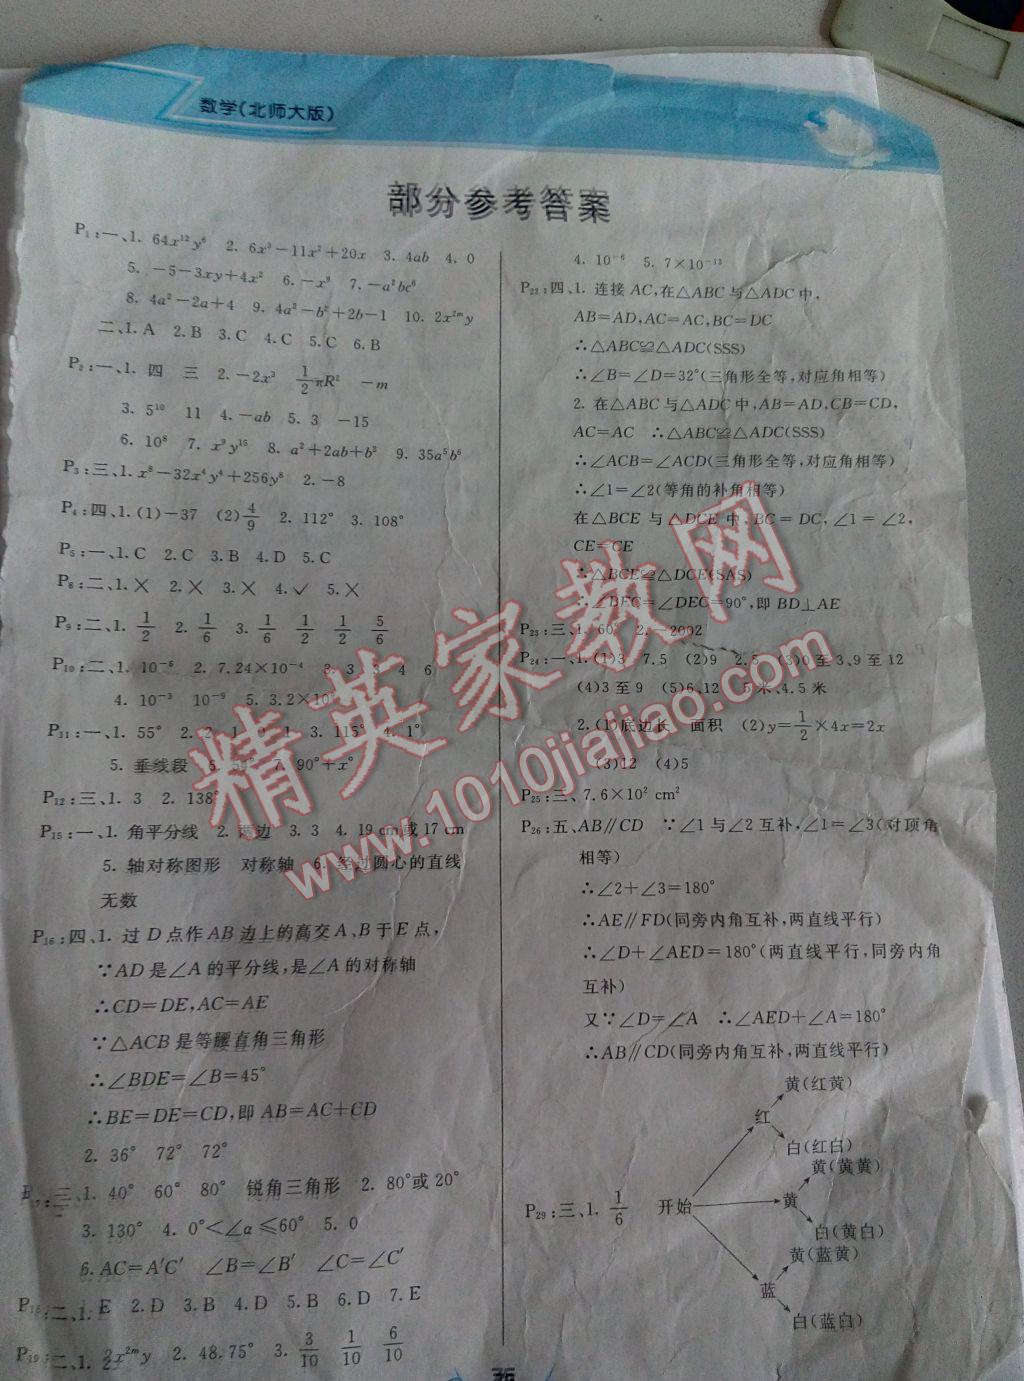 数学(北师大版)
部分参考答案
P₁:一、1. 64x¹²y⁶ 2. 6x³-11x²+20x 3. 4ab 4. 0
5. -5-3xy+4x² 6. -x⁹ 7. -a²bc⁶
8. 4a²-2a+4 9. 4a²-b²+2b-1 10. 2x²ᵐy
二、1. A 2. B 3. C 4. C 5. C 6. B
P₂:一、1. 四 三 2. -2x³ 1/2πR² -m
3. 5¹⁰ 11 4. -ab 5. 3 -15
6. 10⁸ 7. x⁹y¹⁵ 8. a²+2ab+b² 9. 35a⁵b⁶
P₃:三、1. x⁸-32x⁴y⁴+256y⁸ 2. -8
P₄:四、1. (1)-37 (2)4/9 2. 112° 3. 108°
P₅:一、1. C 2. C 3. B 4. D 5. C
P₈:二、1. × 2. × 3. × 4. ✓ 5. ×
P₉:二、1. 1/2 2. 1/6 3. 1/6 1/2 1/2 5/6
P₁₀:二、1. 10⁻⁶ 2. 7.24×10⁻⁴ 3. 3 3 4 6
4. 10⁻³ 10⁻⁹ 5. 3.2×10
P₁₁:一、1. 55° 2. 2 1 0 1 3. 115° 4. 1°
5. 垂线段 7. 90°+x°
P₁₂:三、1. 3 2. 138°
P₁₅:一、1. 角平分线 2. 两边 3. 3 4. 19 cm或17 cm
5. 轴对称图形 对称轴 6. 经过圆心的直线
无数
P₁₆:四、1. 过D点作AB边上的高交A、B于E点,
∵AD是∠A的平分线,是∠A的对称轴
∴CD=DE,AC=AE
∵△ACB是等腰直角三角形
∴∠BDE=∠B=45°
∴BE=DE=CD,即AB=AC+CD
2. 36° 72° 72°
三、1. 40° 60° 80° 锐角三角形 2. 80°或20°
3. 130° 4. 0°<∠α≤60° 5. 0
6. AC=A′C′ ∠B=∠B′ ∠C=∠C′
P₁₈:二、1. E 2. D 3. B 4. D 5. B 6. D 7. E
P₁₉:二、1. x²ᵐy 2. 48.75° 3. 3/10 1/10 6/10
4. 10⁻⁶ 5. 7×10⁻¹³
P₂₂:四、1. 连接AC,在△ABC与△ADC中,
AB=AD,AC=AC,BC=DC
∴△ABC≌△ADC(SSS)
∴∠B=∠D=32°(三角形全等,对应角相等)
2. 在△ABC与△ADC中,AB=AD,CB=CD,
AC=AC ∴△ABC≌△ADC(SSS)
∴∠ACB=∠ACD(三角形全等,对应角相等)
∴∠1=∠2(等角的补角相等)
在△BCE与△DCE中,BC=DC,∠1=∠2,
CE=CE
∴△BCE≌△DCE(SAS)
∴∠BEC=∠DEC=90°,即BD⊥AE
P₂₃:三、1. 60 2. -2002
P₂₄:一、1. (1)3 7.5 (2)9 2.5 (3)0至3、9至12
(4)3至9 (5)6、12 5米、4.5米
2. (1)底边长 面积 (2)y=1/2×4x=2x
(3)12 (4)5
P₂₅:三、7.6×10² cm²
P₂₆:五、AB∥CD ∵∠1与∠2互补,∠1=∠3(对顶角
相等)
∴∠2+∠3=180°
∴AE∥FD(同旁内角互补,两直线平行)
∴∠D+∠AED=180°(两直线平行,同旁内角
互补)
又∵∠D=∠A ∴∠AED+∠A=180°
∴AB∥CD(同旁内角互补,两直线平行)
P₂₉:三、1. 1/6 开始
红
黄(红黄)
白(红白)
黄
黄(黄黄)
白(黄白)
蓝
黄(蓝黄)
白(蓝白)
精英家教网
www.1010jiajiao.com